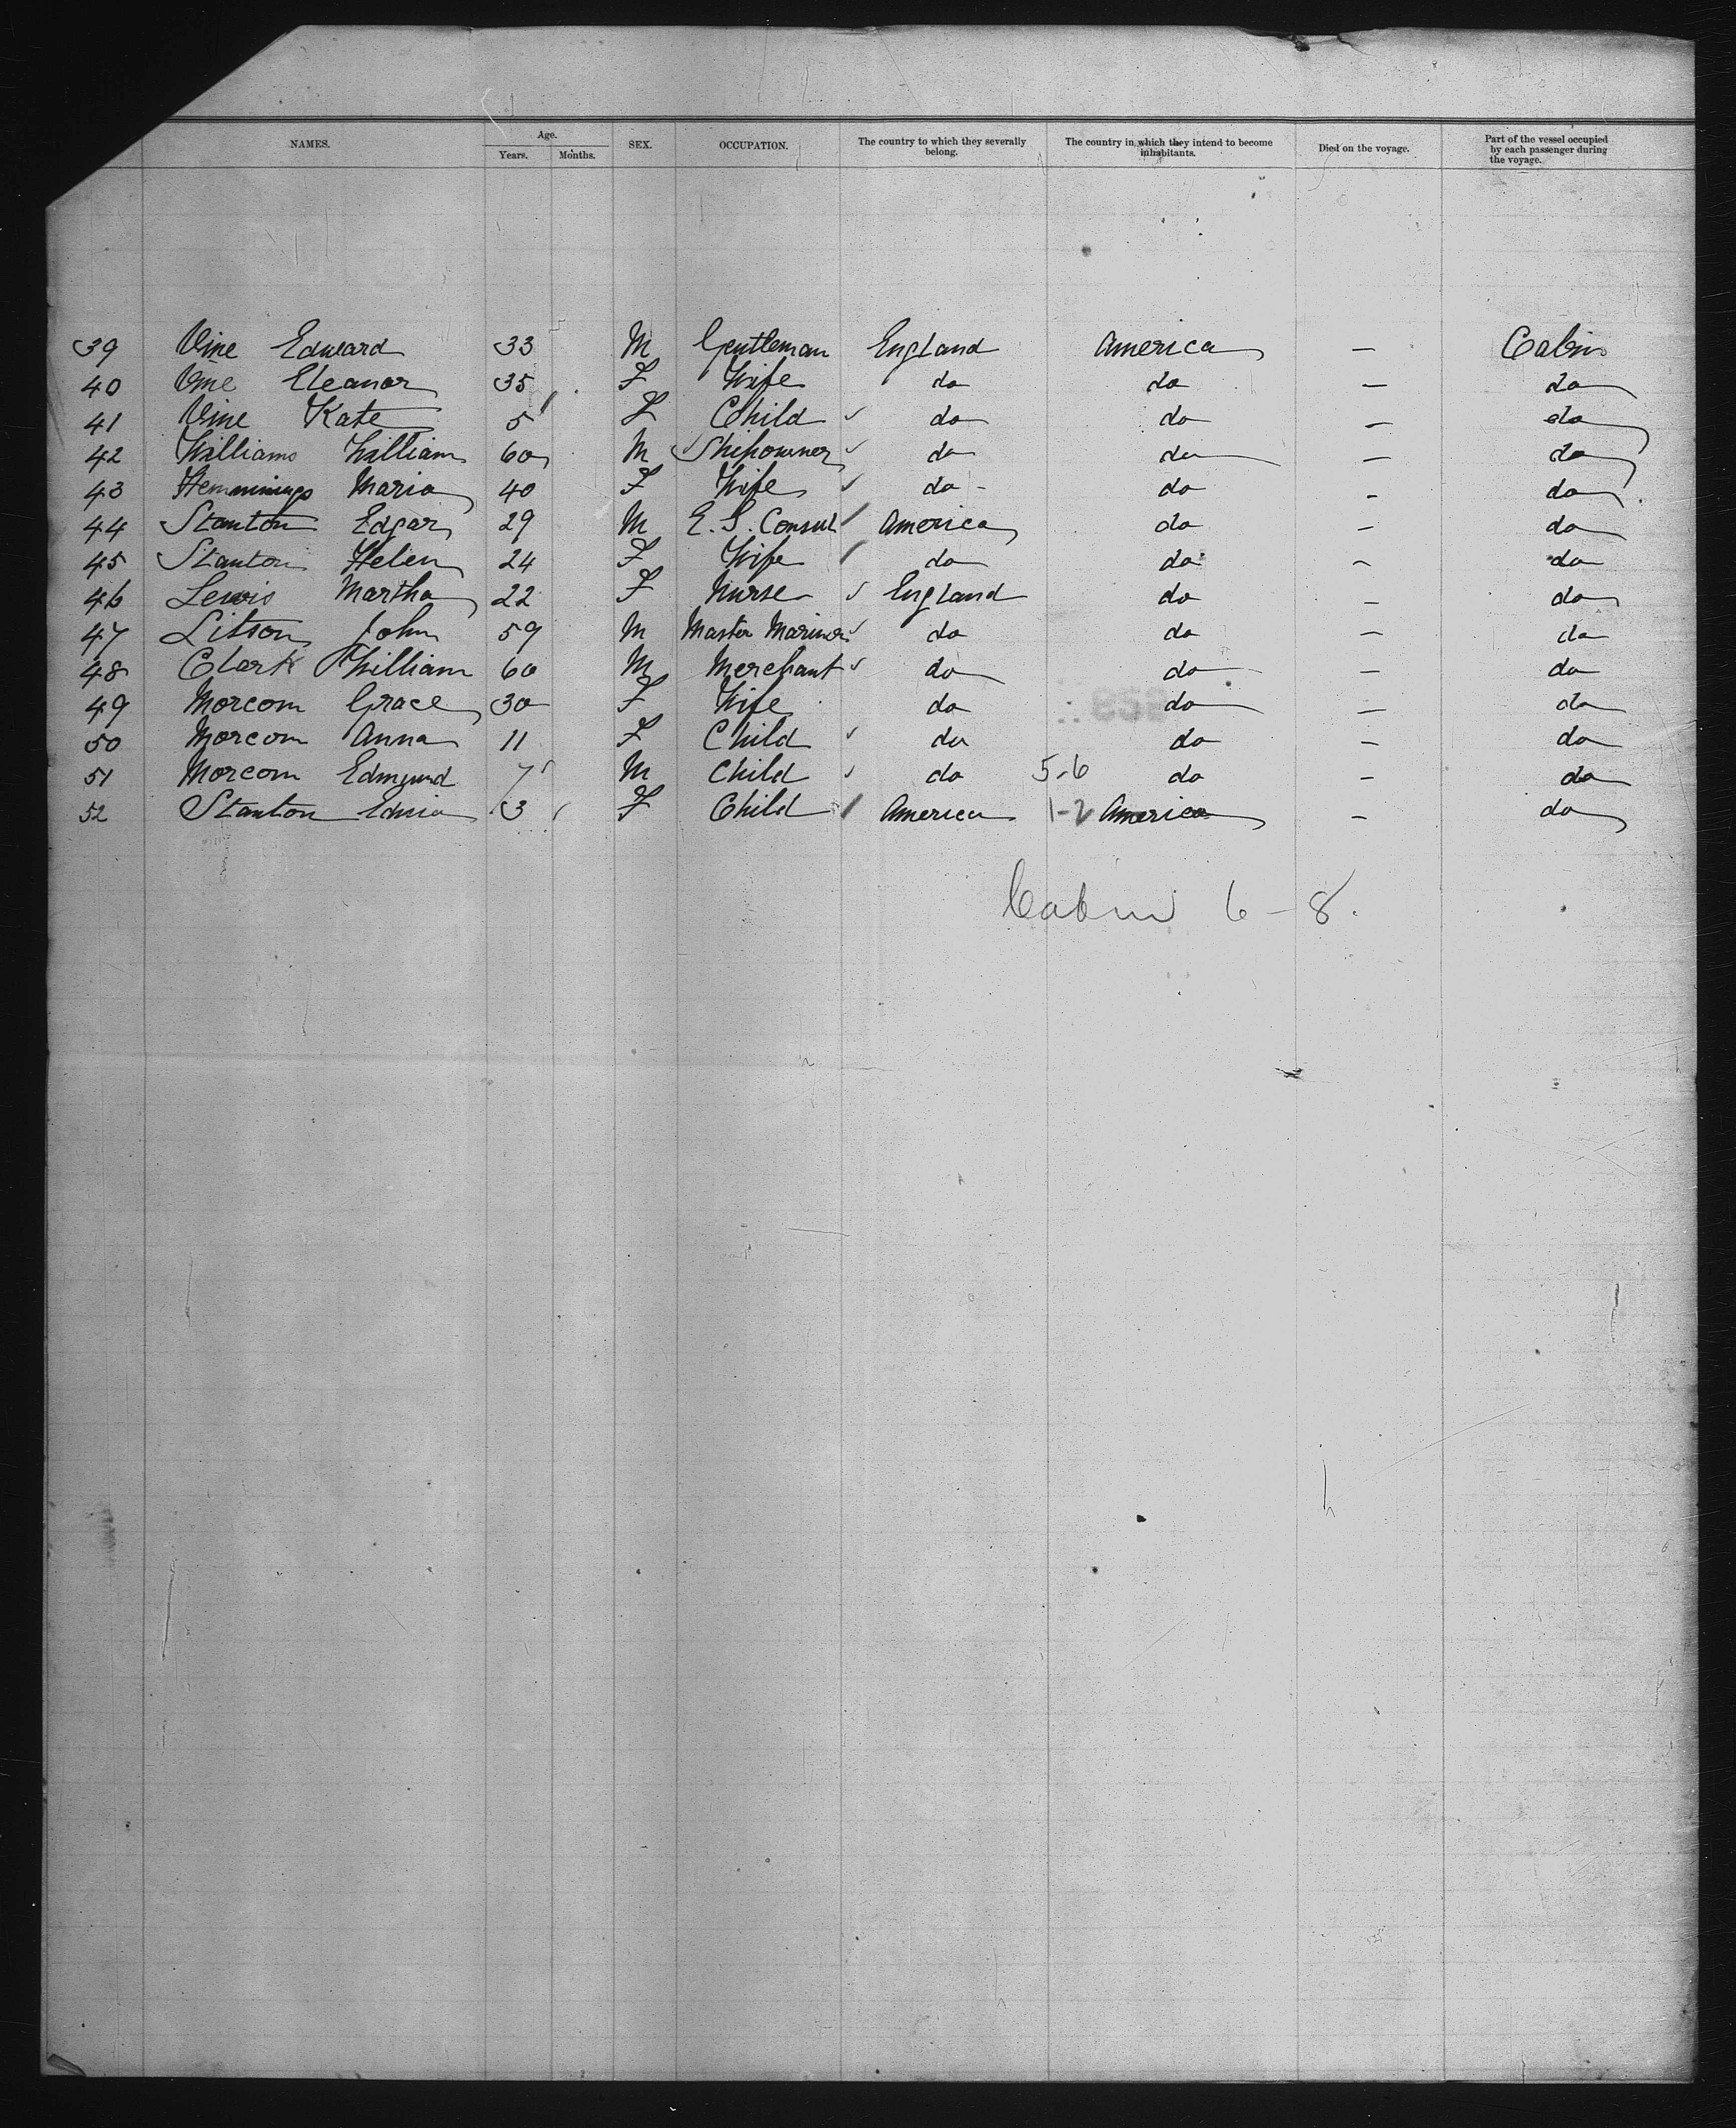 NAMES. Age. Years. Months. SEX. OCCUPATION. The country to which they severally belong. The country in which they intend to become inhabitants. Died on the voyage. Part of the vessel occupied by each passenger during the voyage.
39 Vine Edward 33 M Gentleman England America — Cabin
40 Vine Eleanor 35 F Wife do do — do
41 Vine Kate 5 F Child ✓ do do — do
42 Williams William 60 M Shipowner ✓ do do — do
43 Hemmings Maria 40 F Wife ✓ do - do — do
44 Stanton Edgar 29 M Consul / America do — do
45 Stanton Helen 24 F Wife / do do — do
46 Lewis Martha 22 F Nurse ✓ England do — do
47 Litson John 59 M Master Mariner ✓ do do — do
48 Clark William 60 M Merchant ✓ do do — do
49 Morcom Grace 30 F Wife do do — do
50 Morcom Anna 11 F Child ✓ do do — do
51 Morcom Edmund 7 M Child ✓ do 5-6 do — do
52 Stanton 3 F Child / America 1-2 America — do
Cabin 6-8.